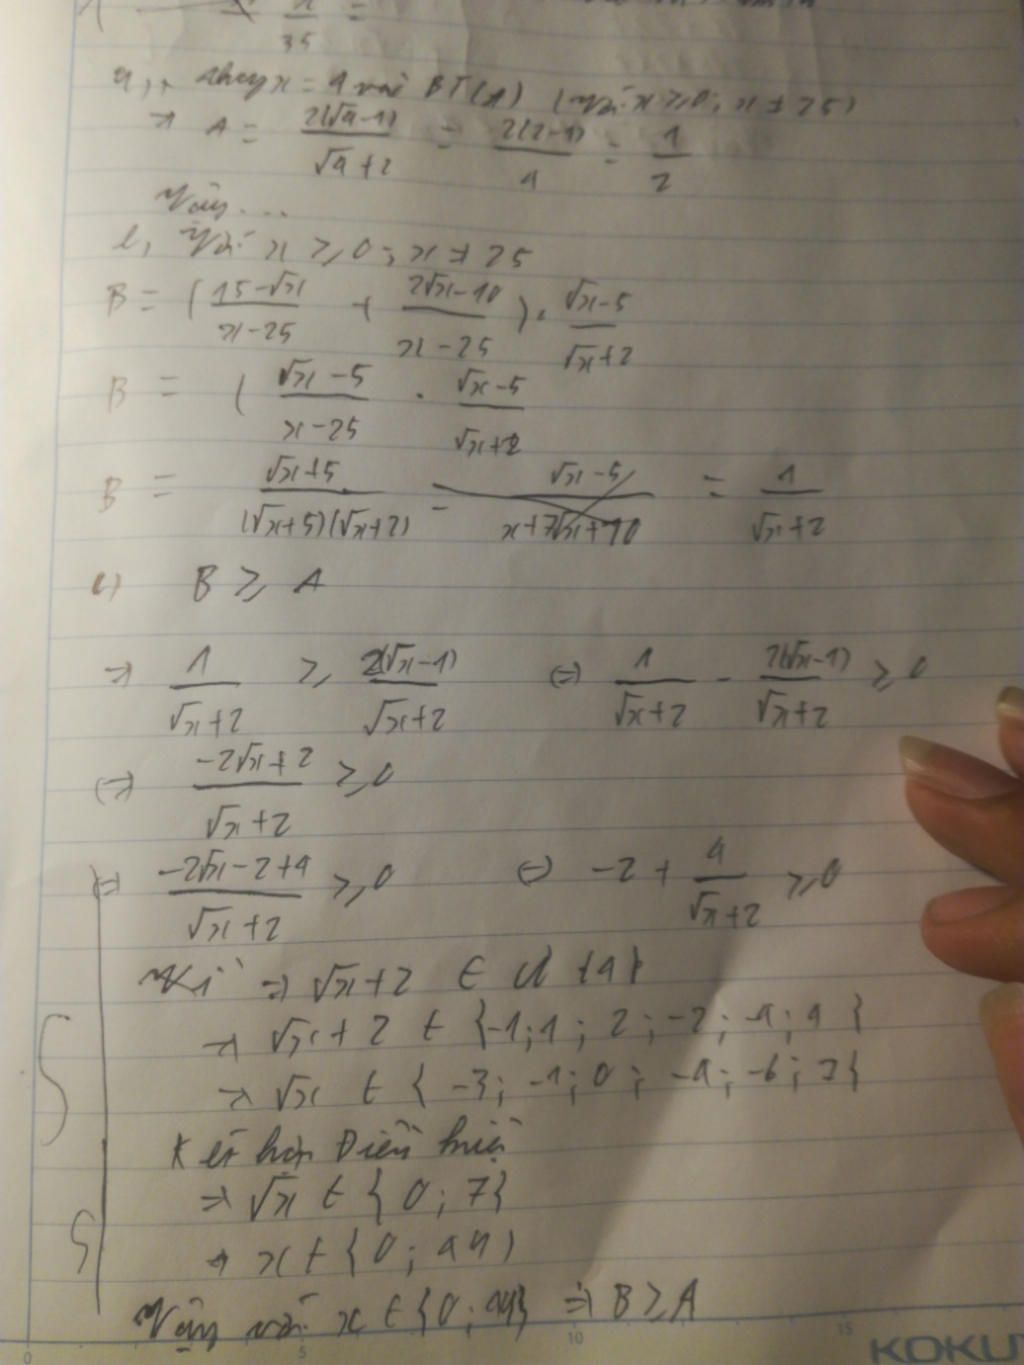 35
a, Thay x = 4 vào BT(A) (Với x ≥ 0; x ≠ 25)
→ A = 2(√4-1)/(√4+2) = 2(2-1)/4 = 1/2
Vậy...
b, Với x ≥ 0; x ≠ 25
B = ( (15-√x)/(x-25) + (2√x-10)/(x-25) ) . (√x-5)/(√x+2)
B = ( (√x-5)/(x-25) . (√x-5)/(√x+2)
B = (√x+5)/((√x+5)(√x+2)) = (√x-5)/(x+7√x+10) = 1/(√x+2)
c) B ≥ A
→ 1/(√x+2) ≥ 2(√x-1)/(√x+2) (=) 1/(√x+2) - 2(√x-1)/(√x+2) ≥ 0
(=) (-2√x+2)/(√x+2) ≥ 0
(=) (-2√x-2+4)/(√x+2) ≥ 0 (=) -2 + 4/(√x+2) ≥ 0
Vì => √x+2 ∈ Ư {4}
→ √x+2 ∈ {-1; 1; 2; -2; -4; 4}
→ √x ∈ {-3; -1; 0; -4; -6; 7}
Kết hợp Điều kiện
=> √x ∈ {0; 7}
→ x ∈ {0; 49)
Vậy với x ∈ {0; 49} => B ≥ A
0 5 10 15 KOKU